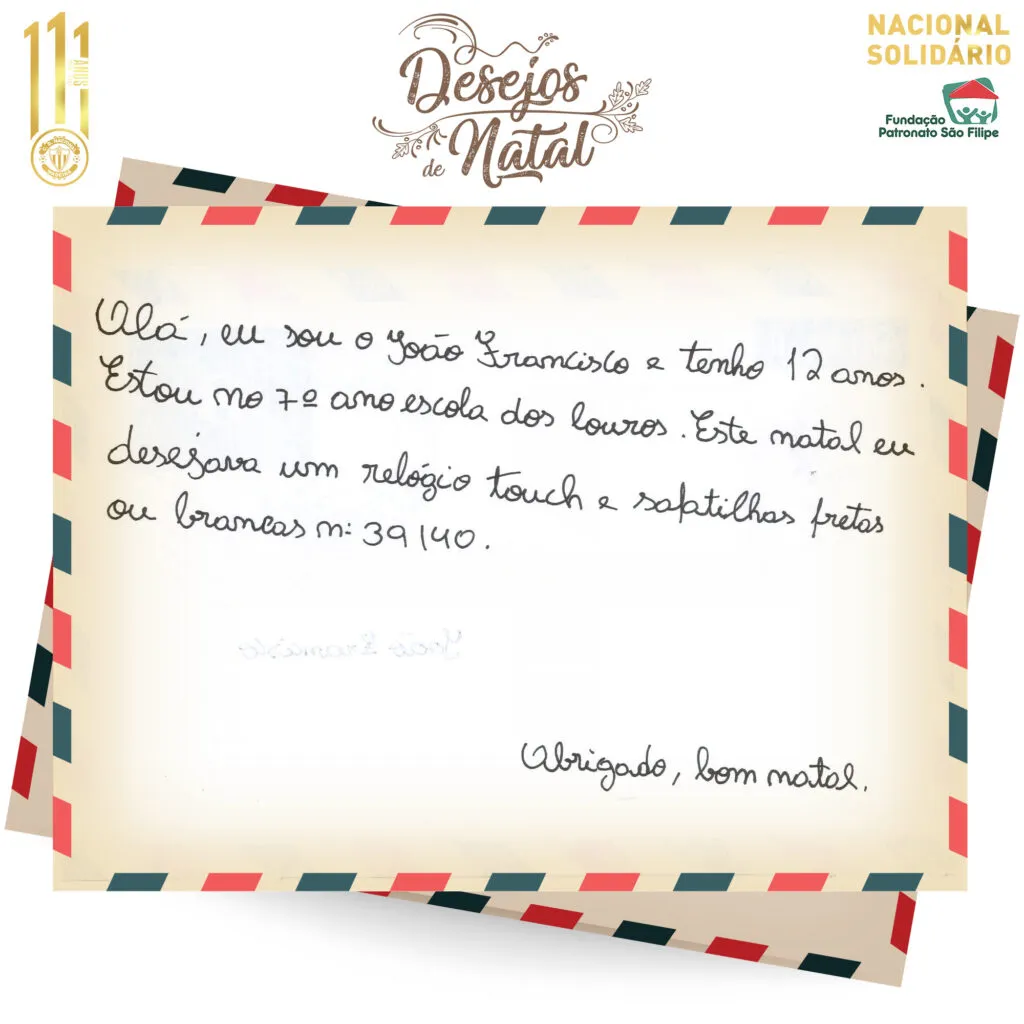 111
ANOS
Desejos
de Natal
NACIONAL
SOLIDÁRIO
Fundação
Patronato São Filipe
Olá, eu sou o João Francisco e tenho 12 anos.
Estou no 7º ano escola dos louros. Este natal eu
desejava um relógio touch e sapatilhas pretas
ou brancas nº: 39/40.
João Francisco
Obrigado, bom natal.